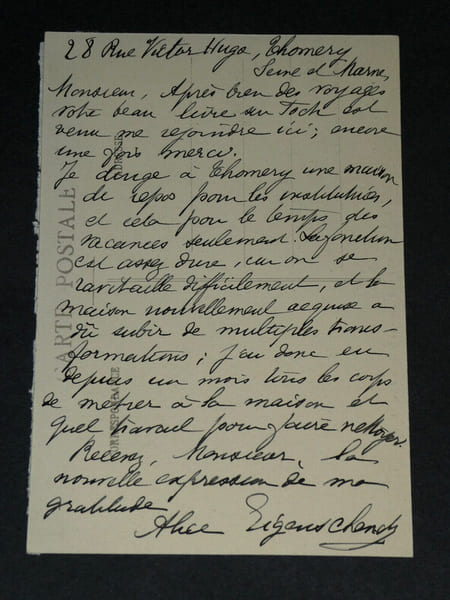 28 Rue Victor Hugo, Thomery
Seine et Marne,
Monsieur, Après bien des voyages
votre beau livre sur Foch est
venu me rejoindre ici; encore
une fois merci.
Je dirige à Thomery une maison
de repos pour les institutrices,
et cela pour le temps des
vacances seulement. La fonction
est assez dure, car on se
ravitaille difficilement, et la
maison nouvellement acquise a
dû subir de multiples trans-
formations; j'eu donc eu
depuis un mois tous les corps
de métier à la maison et
quel travail pour faire nettoyer.
Recevez, Monsieur, la
nouvelle expression de ma
gratitude
Alice
CARTE POSTALE
CORRESPONDANCE
ADRESSE